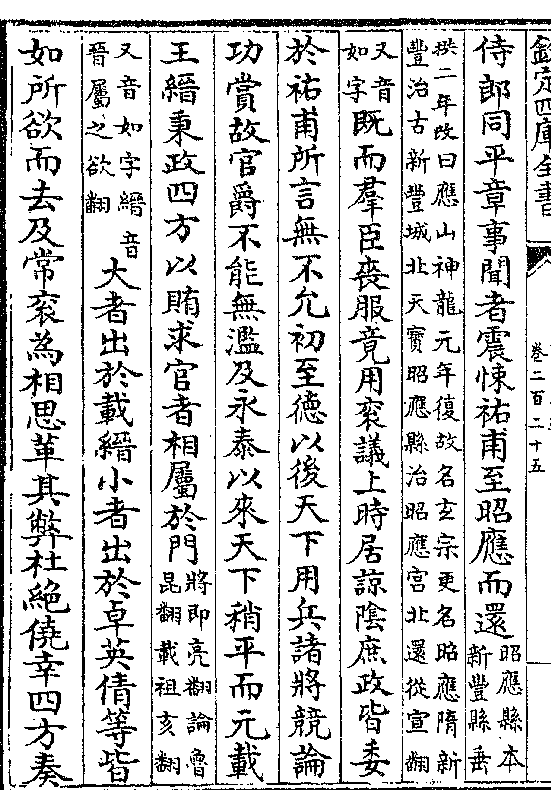 欽定四庫全書
卷二百二十五
侍郎同平章事聞者震悚祐甫至昭應而還昭應縣本新豐縣垂
拱二年改曰應山神龍元年復故名玄宗更名昭應隋新
豐治古新豐城北天寶昭應縣治昭應宮北還從宣翻
又音如字既而羣臣喪服竟用衮議上時居諒陰庶政皆委
於祐甫所言無不允初至德以後天下用兵諸將競論
功賞故官爵不能無濫及永泰以來天下稍平而元載
王縉秉政四方以賄求官者相屬於門將即亮翻論魯昆翻載祖亥翻
又音如字縉音晉屬之欲翻大者出於載縉小者出於卓英倩等皆
如所欲而去及常衮為相思革其弊杜絶僥幸四方奏